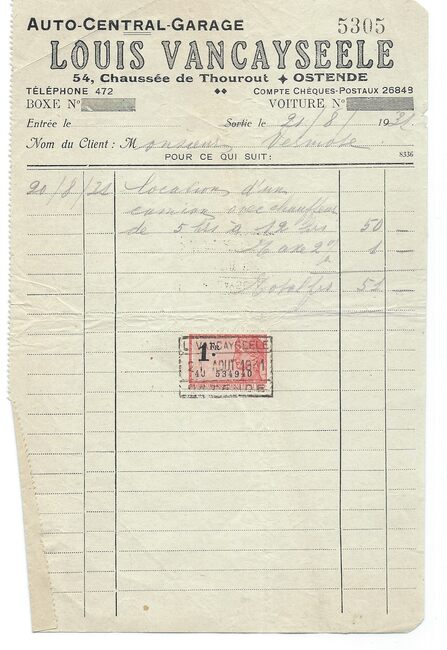 AUTO-CENTRAL-GARAGE
5305
LOUIS VANCAYSEELE
54, Chaussée de Thourout ✦ OSTENDE
TÉLÉPHONE 472 COMPTE CHÈQUES-POSTAUX 26849
BOXE N° VOITURE N°
Entrée le Sortie le 21/8/ 1931
Nom du Client: Monsieur Vermote
POUR CE QUI SUIT: 8336
20/8/31 Location d'un
camion avec chauffeur
de 5 hrs à 12 hrs 50 —
Taxe 2% 1 —
Total frs 51 —
L. VANCAYSEELE
1 Fr
21 AOUT 1931
40 534940
OSTENDE